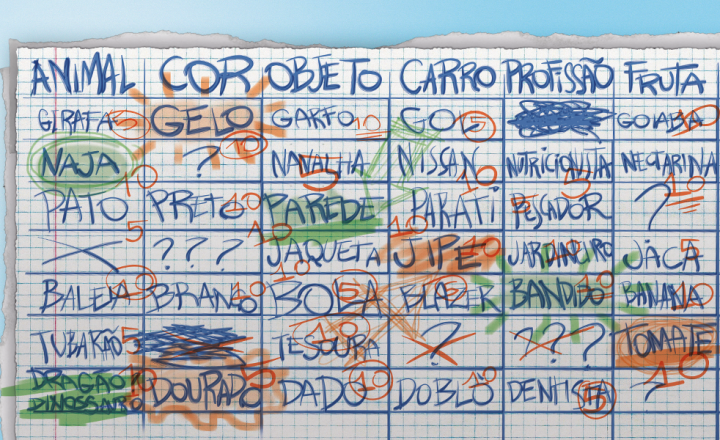 ANIMAL COR OBJETO CARRO PROFISSÃO FRUTA
GIRAFA 5 GELO GARFO 10 GOL 5 GOIABA 10
NAJA 10 ? 10 NAVALHA 5 NISSAN 10 NUTRICIONISTA 5 NECTARINA 10
PATO 5 PRETO 10 PAREDE 10 PARATI 10 PESCADOR ?
??? JAQUETA 10 JIPE 10 JARDINEIRO JACA 5
BALEIA 10 BRANCO 10 BOLA 5 BLAZER 5 BANDIDO 10 BANANA 10
TUBARÃO 5 TESOURA 10 ? ??? TOMATE 10
DRAGÃO DOURADO 5 DADO 10 DOBLÔ 10 DENTISTA ?
DINOSSAURO